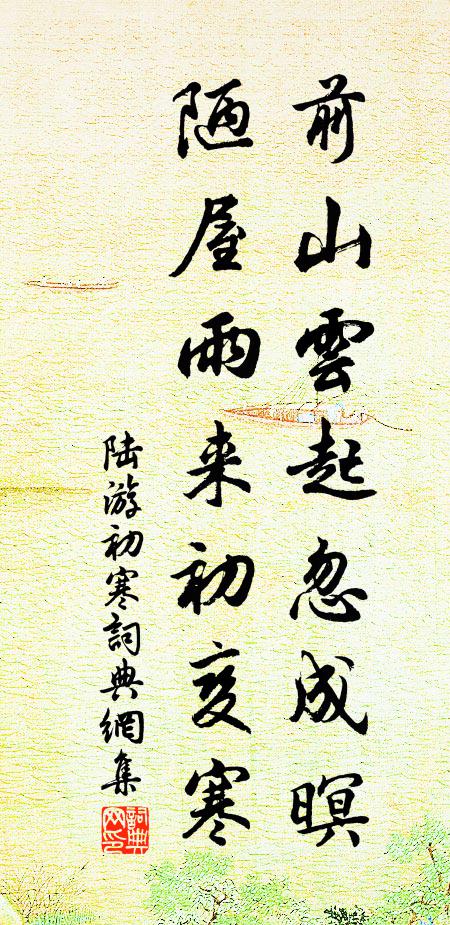 前山雲起忽成暝
陋屋雨来初变寒
陆游初寒詞典網集
詞典网印